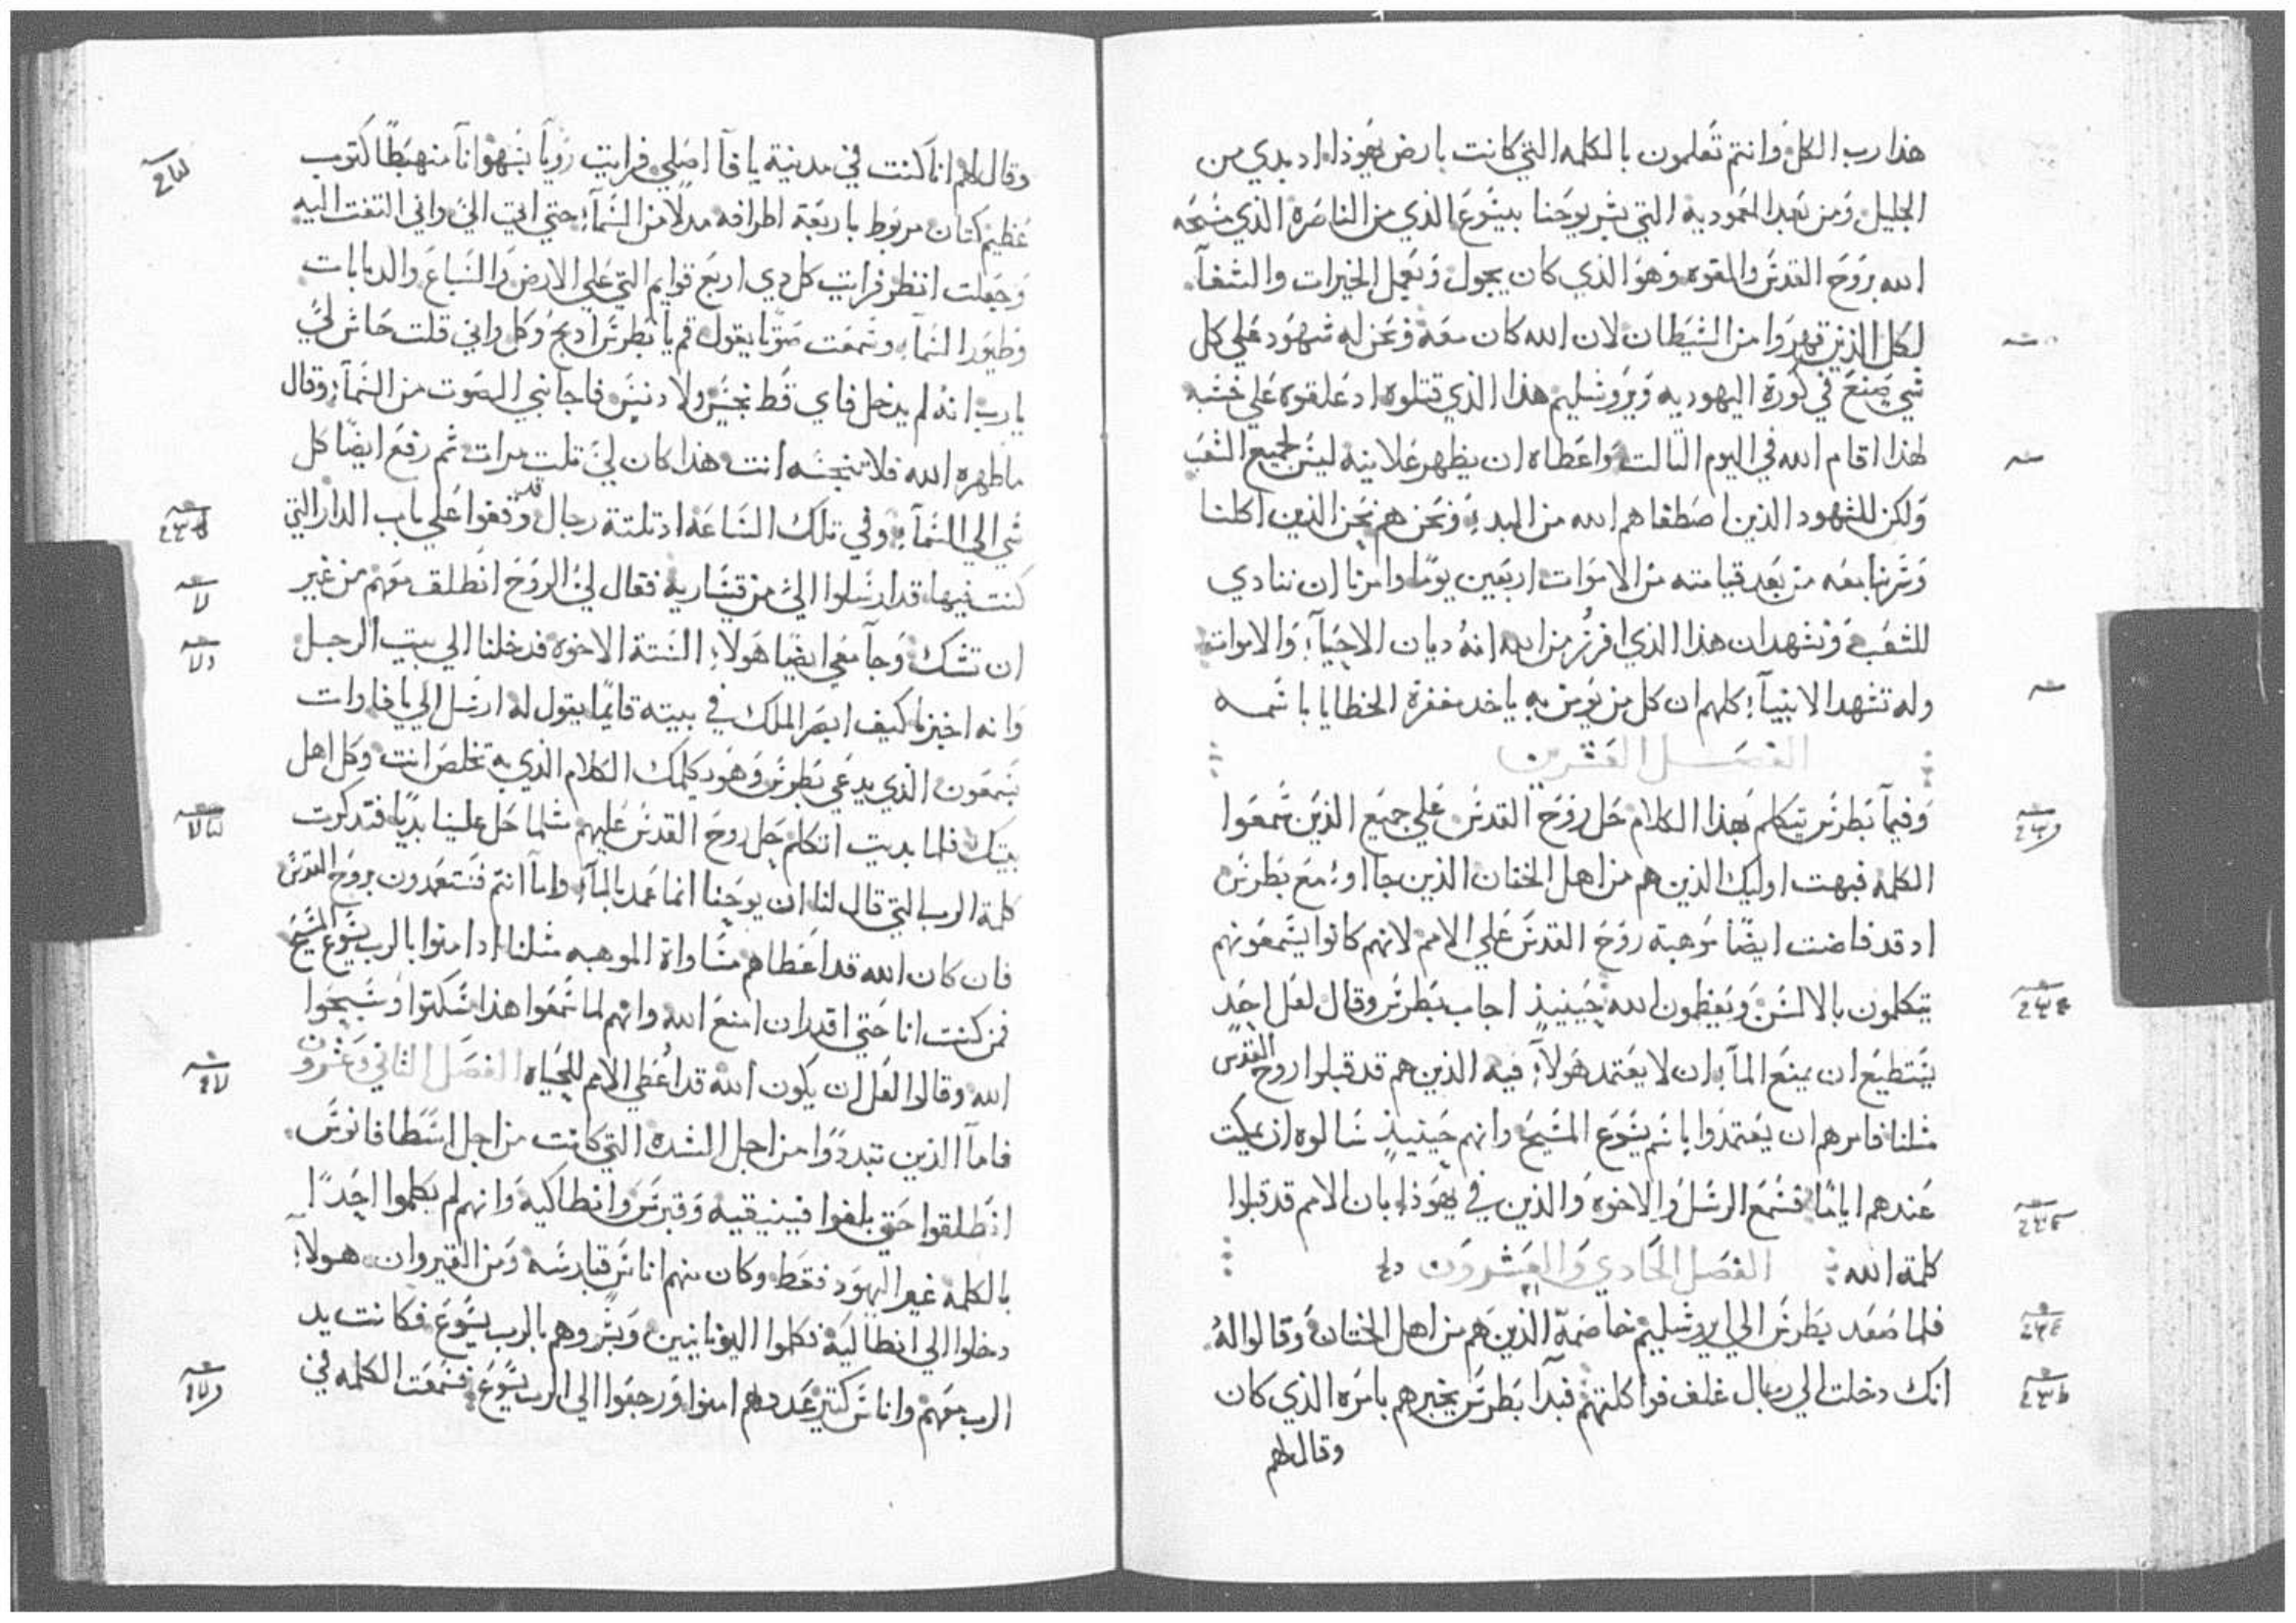 هذا رب الكل وانتم تعلمون بالكلمه التي كانت بارض يهوذا اد بدي من
الجليل ومن بعد المعموديه التي بشر يوحنا بيشوع الذي من الناصره الذي مسحه
الله بروح القدس والقوه وهو الذي كان يجول ويعمل الخيرات والشفآ
لكل الذين قهروا من الشيطان لان الله كان معه ونحن له شهود علي كل
شي صنع في كورة اليهوديه ويروشليم هذا الذي قتلوه اد علقوه علي خشبه
لهذا اقام الله في اليوم التالت واعطاه ان يظهر علانيه ليس لجميع الشعب
ولكن للشهود الذين اصطفاهم الله من البدء ونحن هم نحن الذين اكلنا
وشربنا معه من بعد قيامته من الاموات اربعين يومًا وامرنا ان ننادي
للشعب ونشهد ان هذا الذي افرز من الله انه ديان الاحيآء والاموات
وله تشهد الانبيآء كلهم ان كل من يومن به ياخد مغفرة الخطايا باسمه
الفصل العشرين
وفيمآ بطرس يتكلم بهذا الكلام حل روح القدس علي جميع الذين سمعوا
الكلمه فبهت اوليك الذين هم من اهل الختان الذين جااوا مع بطرس
اد قد فاضت ايضًا موهبة روح القدس علي الامم لانهم كانوا يسمعونهم
يتكلمون بالالسن ويعظمون لله حينيذٍ اجاب بطرس وقال لعل احدٍ
يستطيع ان يمنع المآء ان لا يعتمد هولآء فيه الذين هم قد قبلوا روح القدس
مثلنا فامرهم ان يعتمدوا باسم يسوع المسيح وانهم حينيذٍ سالوه ان يمكت
عندهم ايامًا فسمع الرسل والاخوه والذين في يهوذا بان الامم قد قبلوا
كلمة الله الفصل الحادي والعشرون
فلما صعد بطرس الي ايروشليم خاصمه الذين هم من اهل الختان وقالوا له
انك دخلت الي رجال غلف فواكلتهم فبدآ بطرس يخبرهم بامره الذي كان
وقال لهم
وقال لهم انا كنت في مدينة يافآ اصلي فرايت روياً بسهو انآ منهبطًا كتوب
عظيم كتان مربوط باربعة اطرافه مدلا من السمآء حتي اتي الي واني التفت اليه
وجعلت انظر فرايت كل دي اربع قوايم التي علي الارض والسباع والدبابات
وطيور السمآء وسمعت صوتًا يقول قم يا بطرس ادبح وكل واني قلت حاش لي
يا رب انه لم يدخل فاي قط نجس ولا دنس فاجابني الصوت من السمآء وقال
ماطهره الله فلا تنجسه انت هذا كان لي تلت مرات ثم رفع ايضًا كل
شي الي السمآء وفي تلك الساعه اد تلتة رجال قد وقفوا علي باب الدار التي
كنت فيها قد ارسلوا الي من قيساريه فقال لي الروح انطلق معهم من غير
ان تشك وجآ معي ايضا هولاء الستة الاخوه فدخلنا الي بيت الرجل
وانه اخبرنا كيف ابصر الملك في بيته قايمًا يقول له ارسل الي يافا وات
بسمعون الذي يدعي بطرس وهو يكلمك الكلام الذي به تخلص انت وكل اهل
بيتك فلما بديت اتكلم حل روح القدس عليهم مثلما حل علينا بديًا فتدكرت
كلمة الرب التي قال لنا ان يوحنا انما عمد بالمآء واماّ انتم فستعمدون بروح القدس
فان كان الله قد اعطاهم مساواة الموهبه مثلنا اد امنوا بالرب يسوع المسيح
فمن كنت انا حتي اقدر ان امنع الله وانهم لما سمعوا هذا سكتوا وسبحوا
الله وقالوا لعل ان يكون الله قد اعطي الامم للحياه الفصل الثاني وعشرون
فامآ الذين تبددوا من اجل الشده التي كانت من اجل اسطافانوس
انطلقوا حتي بلغوا فينيقيه وقبرس وانطاكيه وانهم لم يكلموا احدًا
بالكلمه غير اليهود فقط وكان منهم اناس قبارسه ومن القيروان هولآء
دخلوا الي انطاكيه فكلموا اليونانيين وبشروهم بالرب يسوع فكانت يد
الرب معهم واناس كتير عددهم امنوا ورجعوا الي الرب يسوع فسمعت الكلمه في